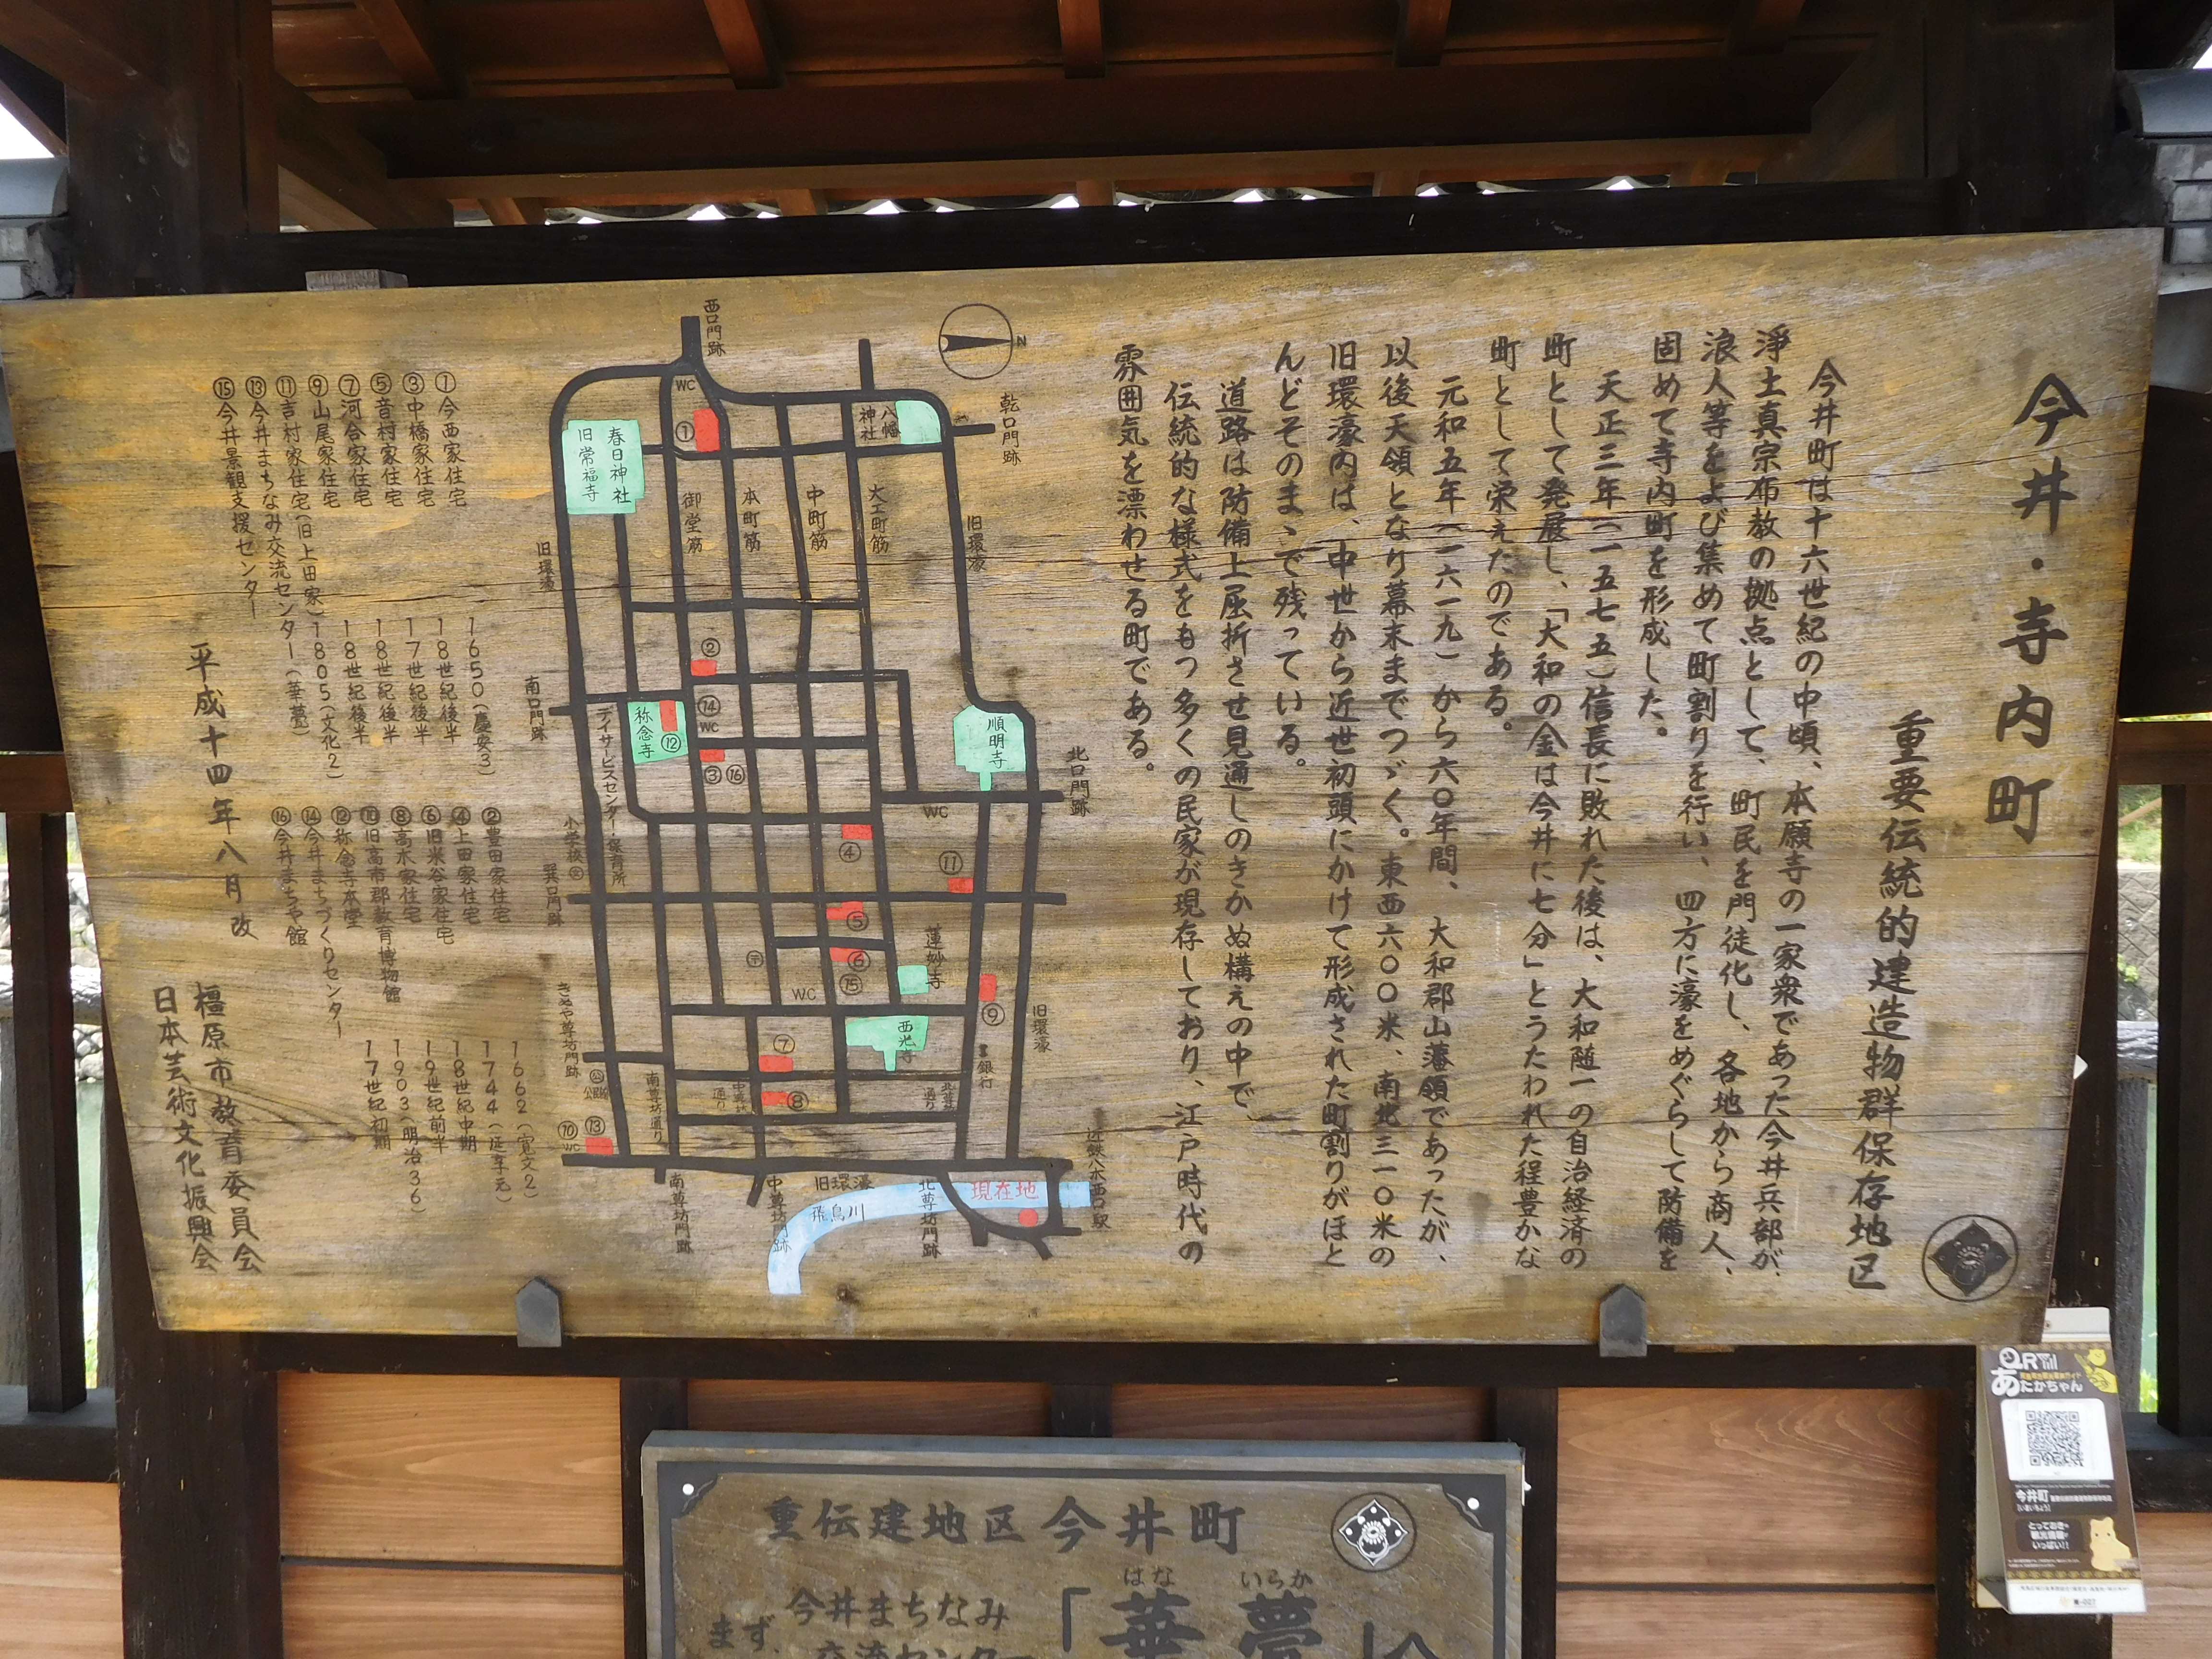 今井・寺内町
重要伝統的建造物群保存地区
今井町は十六世紀の中頃、本願寺の一家衆であった今井兵部が、
浄土真宗布教の拠点として、町民を門徒化し、各地から商人、
浪人等をよび集めて町割りを行い、四方に濠をめぐらして防備を
固めて寺内町を形成した。
天正三年(一五七五)信長に敗れた後は、大和随一の自治経済の
町として発展し、「大和の金は今井に七分」とうたわれた程豊かな
町として栄えたのである。
元和五年(一六一九)から六〇年間、大和郡山藩領であったが、
以後天領となり幕末までつゞく。東西六〇〇米、南北三一〇米の
旧環濠内は、中世から近世初頭にかけて形成された町割りがほと
んどそのまゝで残っている。
道路は防備上屈折させ見通しのきかぬ構えの中で、
伝統的な様式をもつ多くの民家が現存しており、江戸時代の
雰囲気を漂わせる町である。
N
西口門跡
乾口門跡
WC
①
八幡神社
春日神社
旧常福寺
御堂筋
本町筋
中町筋
大工町筋
旧環濠
旧環濠
②
南口門跡
称念寺
⑫
⑭
WC
③
⑯
順明寺
北口門跡
デイサービスセンター・保育所
WC
小学校
④
⑪
巽口門跡
⑤
⑥
⑮
蓮妙寺
〒
WC
⑨
西光寺
旧環濠
銀行
きぬや尊坊門跡
公
公民館
⑦
⑧
南尊坊通り
中尊坊通り
北尊坊通り
⑩
WC
⑬
南尊坊門跡
中尊坊門跡
旧環濠
飛鳥川
北尊坊門跡
現在地
近鉄八木西口駅
①今西家住宅 1650(慶安3)
③中橋家住宅 18世紀後半
⑤音村家住宅 17世紀後半
⑦河合家住宅 18世紀後半
⑨山尾家住宅 18世紀後半
⑪吉村家住宅(旧上田家) 1805(文化2)
⑬今井まちなみ交流センター(華甍)
⑮今井景観支援センター
②豊田家住宅 1662(寛文2)
④上田家住宅 1744(延享元)
⑥旧米谷家住宅 18世紀中期
⑧高木家住宅 19世紀前半
⑩旧高市郡教育博物館 1903(明治36)
⑫称念寺本堂 17世紀初期
⑭今井まちづくりセンター
⑯今井まちや館
平成十四年八月 改
橿原市教育委員会
日本芸術文化振興会
重伝建地区今井町
今井まちなみ
まず、交流センター
はな いらか
「華甍」へ
QR
あたかちゃん
今井町
とっておき
観光情報
いっぱい!!